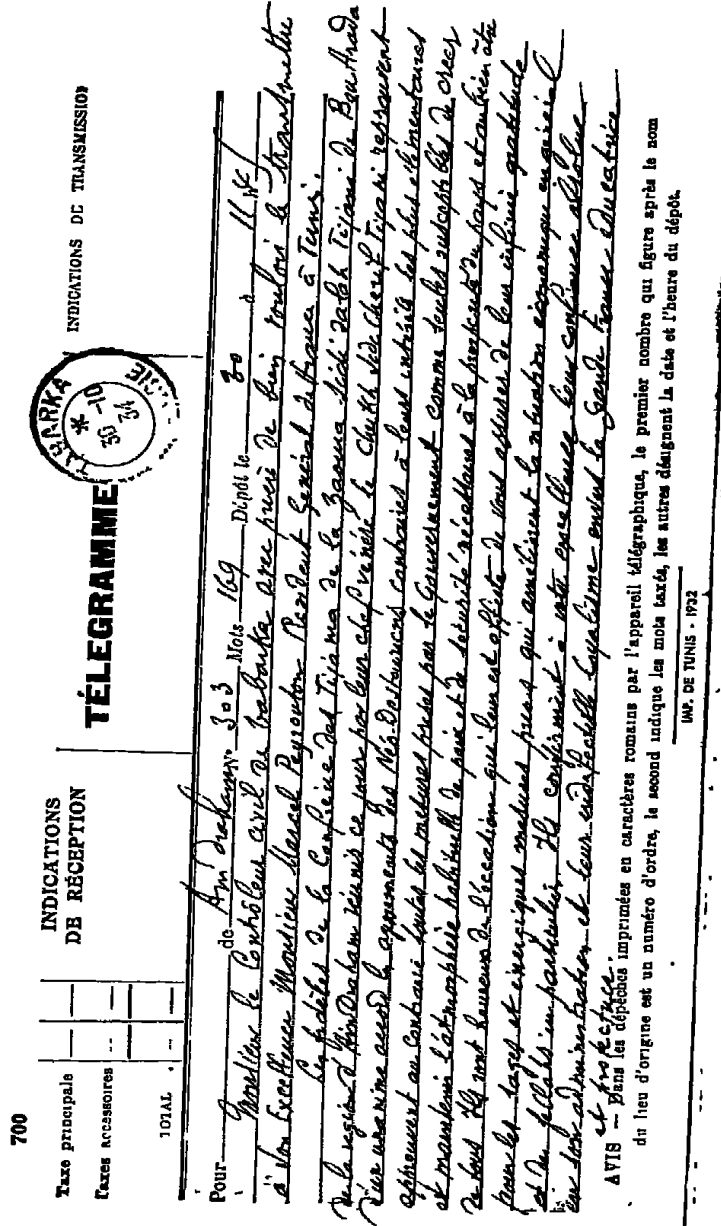 700
Taxe principale
Taxes accessoires
TOTAL
INDICATIONS
DE RÉCEPTION
TÉLÉGRAMME
TABARKA
30 -10
34
INDICATIONS DE TRANSMISSION
Pour de Ain Draham N° 303 Mots 169 Dépôt le 30 à 11 h
Monsieur le Contrôleur civil de Tabarka avec prière de bien vouloir le transmettre
à Son Excellence Monsieur Marcel Peyrouton Résident Général de France à Tunis.
Les fidèles de la Confrérie des Tijania de la Zaouia Sidi Salah Tijani de Bou Arada
de la région d'Ain Draham réunis ce jour par leur chef vénéré le Cheikh Sidi Cherif Tijani réprouvent
d'un unanime accord les agissements des Néo-Destouriens contraires à leurs intérêts les plus élémentaires
approuvent au contraire toutes les mesures prises par le Gouvernement comme seules susceptibles de créer
et maintenir l'atmosphère habituelle de paix et de sécurité nécessaires à la prospérité du pays et au bien être
de tous Ils sont heureux de l'occasion qui leur est offerte de vous assurer de leur infinie gratitude
pour les sages et énergiques mesures prises qui améliorent la situation économique en général
et du fellah en particulier. Ils confirment à votre excellence leur confiance absolue
en son administration et leur indéfectible loyalisme envers la Grande France éducatrice
et protectrice.
AVIS — Dans les dépêches imprimées en caractères romains par l'appareil télégraphique, le premier nombre qui figure après le nom
du lieu d'origine est un numéro d'ordre, le second indique les mots taxés, les autres désignent la date et l'heure du dépôt.
IMP. DE TUNIS - 1932